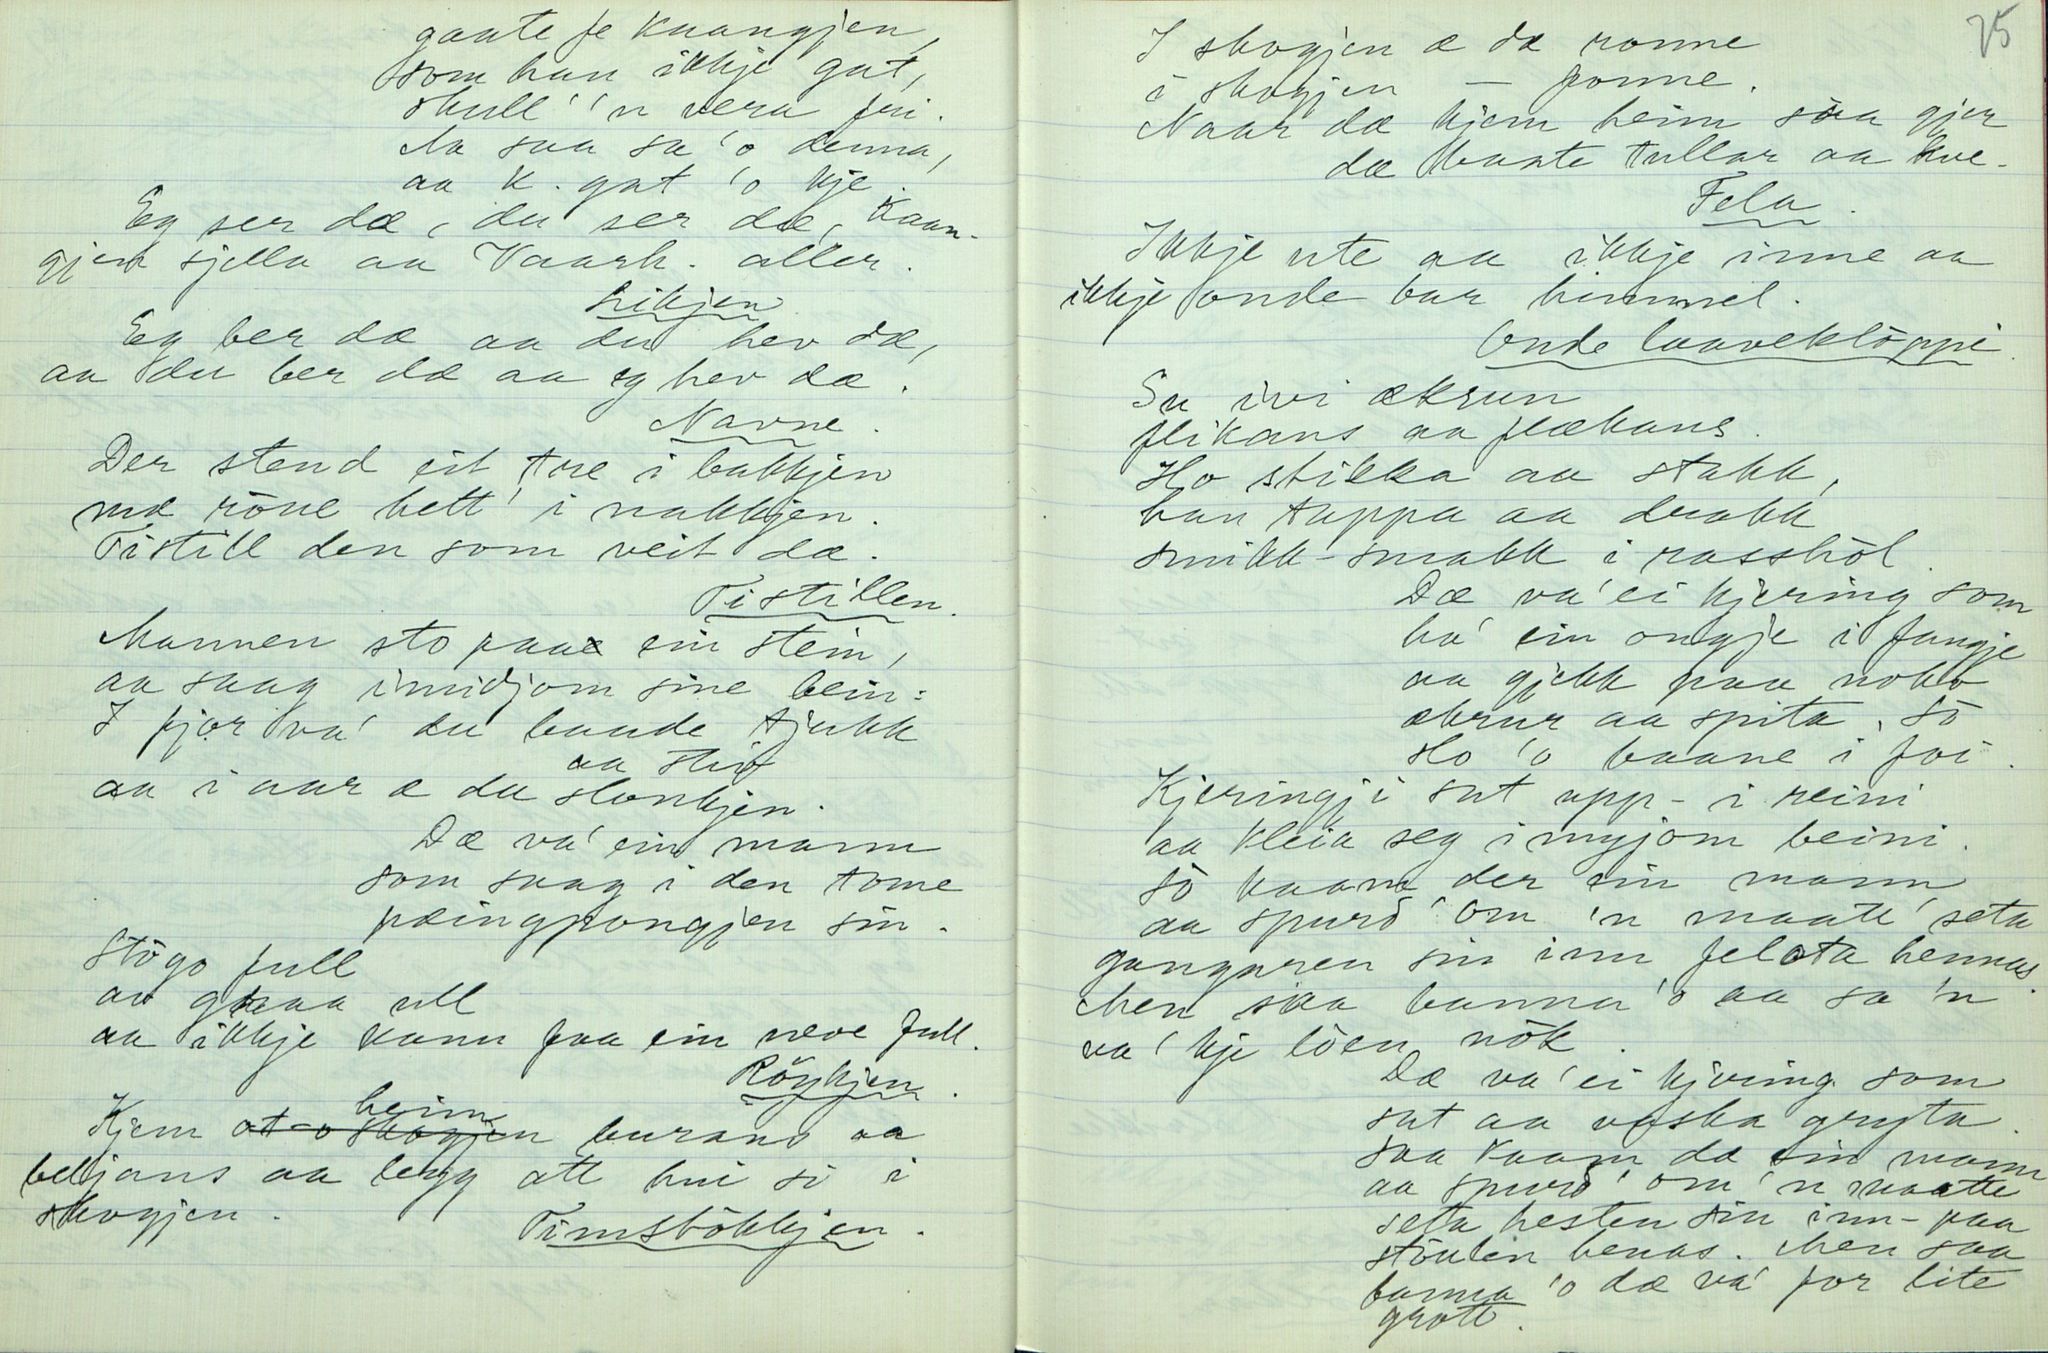 gaate fe Kaangjen,
som han ikkje gat,
skull' 'n vera fri.
Aa saa sa 'o denna,
aa K. gat 'o kje.
Eg ser dæ, du ser dæ, Kaan-
gjen sjella aa Vaarh. aller.
Likjen
Eg ber dæ aa du hev dæ,
aa du ber dæ aa eg hev dæ.
Navne.
Der stend eit tre i bakkjen
mæ röue hett' i nakkjen.
Tistill den som veit dæ.
Tistillen.
Mannen sto paa ein stein,
aa saag imidjom sine bein:
I fjor va' du baade tjukk
aa stiv
aa i aar æ du slonkjen.
Dæ va' ein mann
som saag i den tome
pæingpongjen sin.
Stögo full
av graa ull
aa ikkje kann faa ein neve full.
Röykjen.
heim
Kjem at o skogjen burans aa
beljans aa legg att hui si i
skogjen.
Timstökkjen.
75
I skogjen æ dæ ronne
i skogjen — fonne.
Naar dæ kjem heim saa gjer
dæ baate tullar aa kve.
Fela.
Ikkje ute aa ikkje inne aa
ikkje onde bar himmel.
Onde laaveklöppi.
Su ivi ækrun
flikans aa flækans.
Ho stikka aa stakk,
han tappa aa drakk
smikk-smakk i rasshöl.
Dæ va' ei kjering som
ha' ein ongje i fangje
aa gjekk paa noko
ækrur aa spita. Sö
slo 'o baane i foi.
Kjeringji sat upp- i reini
aa kleia seg i myjom beini.
Sö kaam der ein mann
aa spurd' om 'n maatt' seta
gangaren sin inn felota hennas.
Men saa banna 'o aa sa 'n
va' kje löen nök.
Dæ va' ei kjering som
sat aa vaska gryta.
Saa kaam dæ ein mann
aa spurd' om 'n maatte
seta hesten sin inn- paa
stöulen henas. Men saa
banna 'o dæ va' for lite
grott.